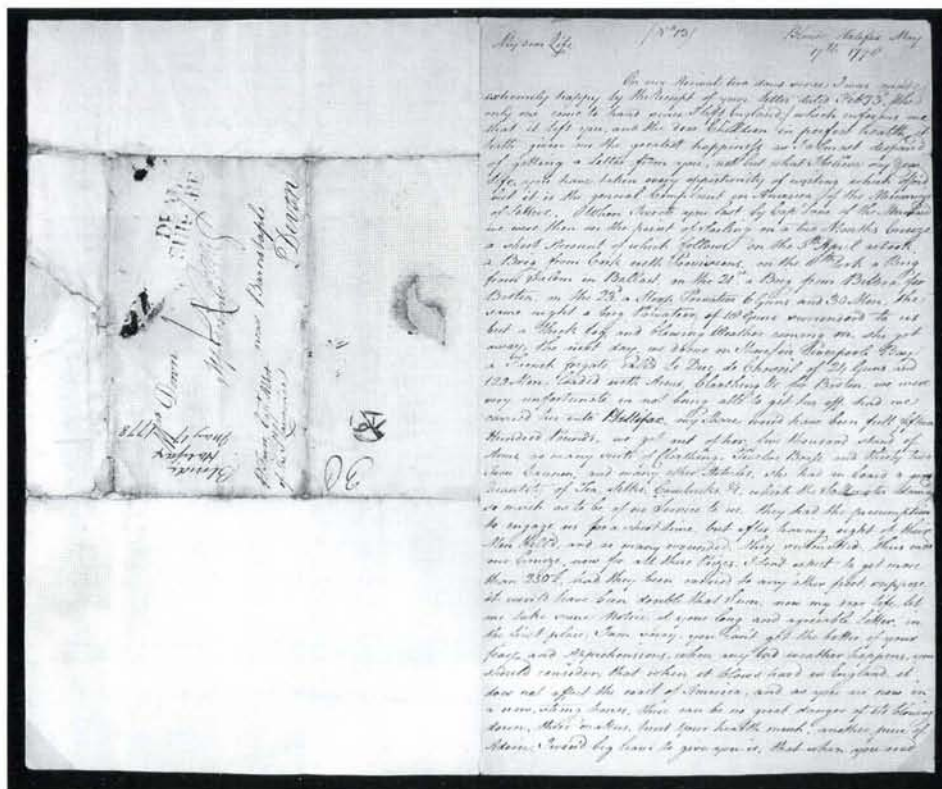 (No 13) Blonde, Halifax May
17th 1778
My dear Life
On our Arrival two days since, I was made
extremely happy by the receipt of your letter dated Feb
only one come to hand since I left England) which informs me
that it left you, and the dear Children in perfect health, it
hath given me the greatest happiness, as I almost despaired
of getting a Letter from you, not but what I believe my Dear
Life, you have taken every opportunity of writing which
but it is the general Complaint in America, of the Miscarriage
of Letters. When I wrote you last by Cap
we were then on the point of Sailing on a two Months Cruize
a short Account of which follows on the April retook
a Brig from Cork with Provisions, on the took a Brig
from Salem in Ballast, on the 21st a Brig from Bilboa for
Boston, on the 23d a Sloop Privateer 6 Guns and 30 Men, the
same night a Brig Privateer of Guns surrender'd to us
but a Thick Fog and blowing Weather coming on, she got
away, the next day we drove on Shore in Bay
a French frigate called Le Duc de Choiseul of 24 Guns and
122 Men, Loaded with Arms, Cloathing &c for Boston, we were
very unfortunate in not being able to get her off, had we
carried her into Hallifax, my Share would have been full fifteen
Hundred Pounds, we got out of her, five thousand stand of
Arms, as many suits of Cloathing, Twelve Brass and Thirty two
Iron Cannon, and many other Articles, she had on board a great
Quantity of Tea, Silks, Cambricks &c which the Salt water
so much as to be of no Service to us. they had the presumption
to engage us for a short time, but after having eight of their
Men Kill'd, and as many wounded, they submitted, thus ends
our Cruize, now for all these Prizes, I dont expect to get more
than 250£, had they been carried to any other port, suppose
it would have been double that Sum, now my dear life, let
me take some Notice, of your long and agreeable letter, in
the first place, I am sorry, you can't get the better of your
fears and Apprehensions, when any bad weather happens, you
should consider, that when it blows hard in England, it
does not affect the coast of America, and as you are now in
a new, strong house, there can be no great danger of its blowing
down, these must your health much, another piece of
Advice, I would beg leave to give you is, that when you send
DE VO
Mrs Dunn
near Barnstaple
Devon
Blonde,
Halifax
May 17th 1778